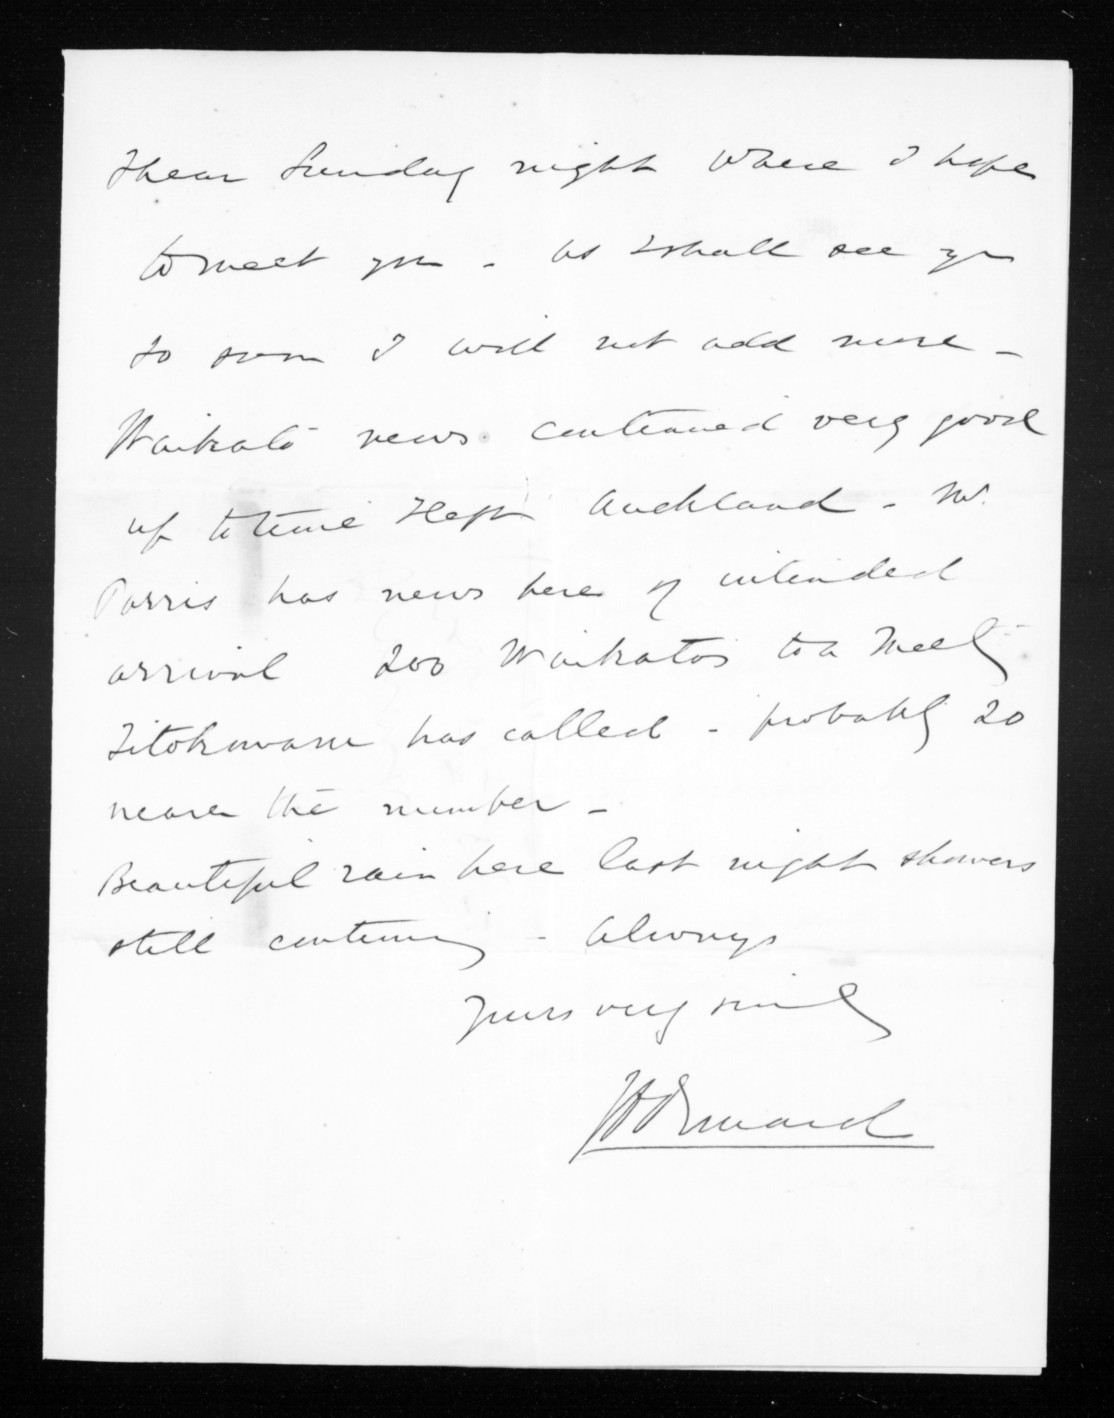 I hear Sunday night where I hope
to meet you - as I shall see you
so soon I will not add more -
Waikato news continued very good
up to time I left Auckland - Mr.
Parris has news here of intended
arrival 200 Waikatos to a Meetg
Titokowaru has called - probably 20
nearer the number -
Beautiful rain here last night showers
still continuing - Always
Yours very sincely
J D Ormond